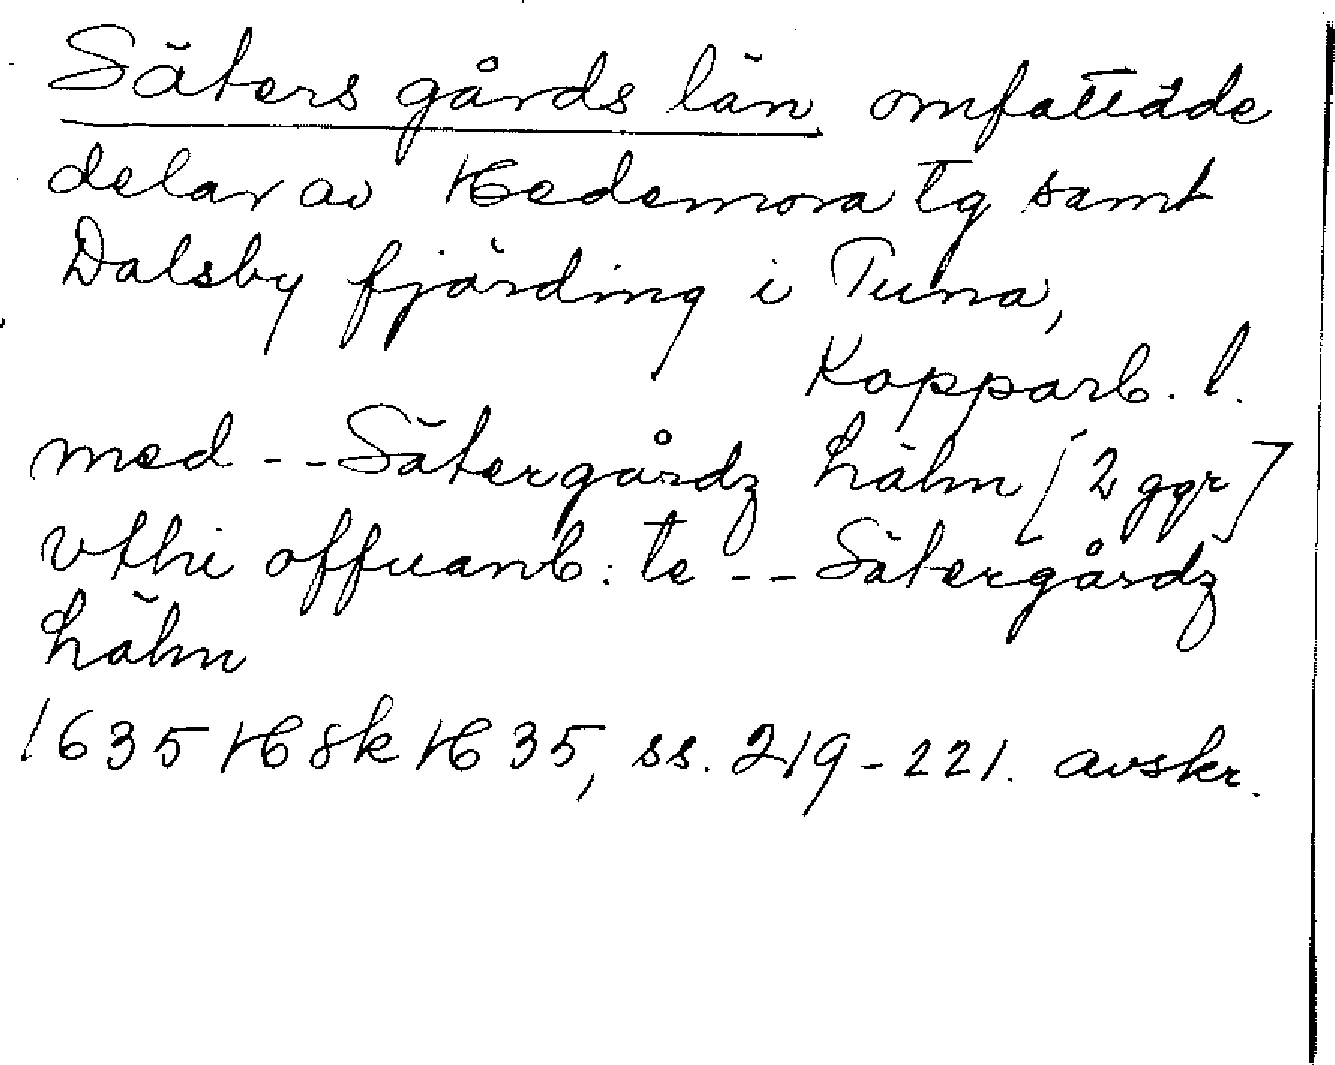 Säters gårds län omfattade
delar av Hedemora tg samt
Dalsby fjärding i Tuna,
Kopparb. l.
med -- Sätergårdz hälm [2 ggr]
vthi offuanb: te -- Sätergårdz
hälm
1635 H 8k H 35, ss. 219-221. avskr.